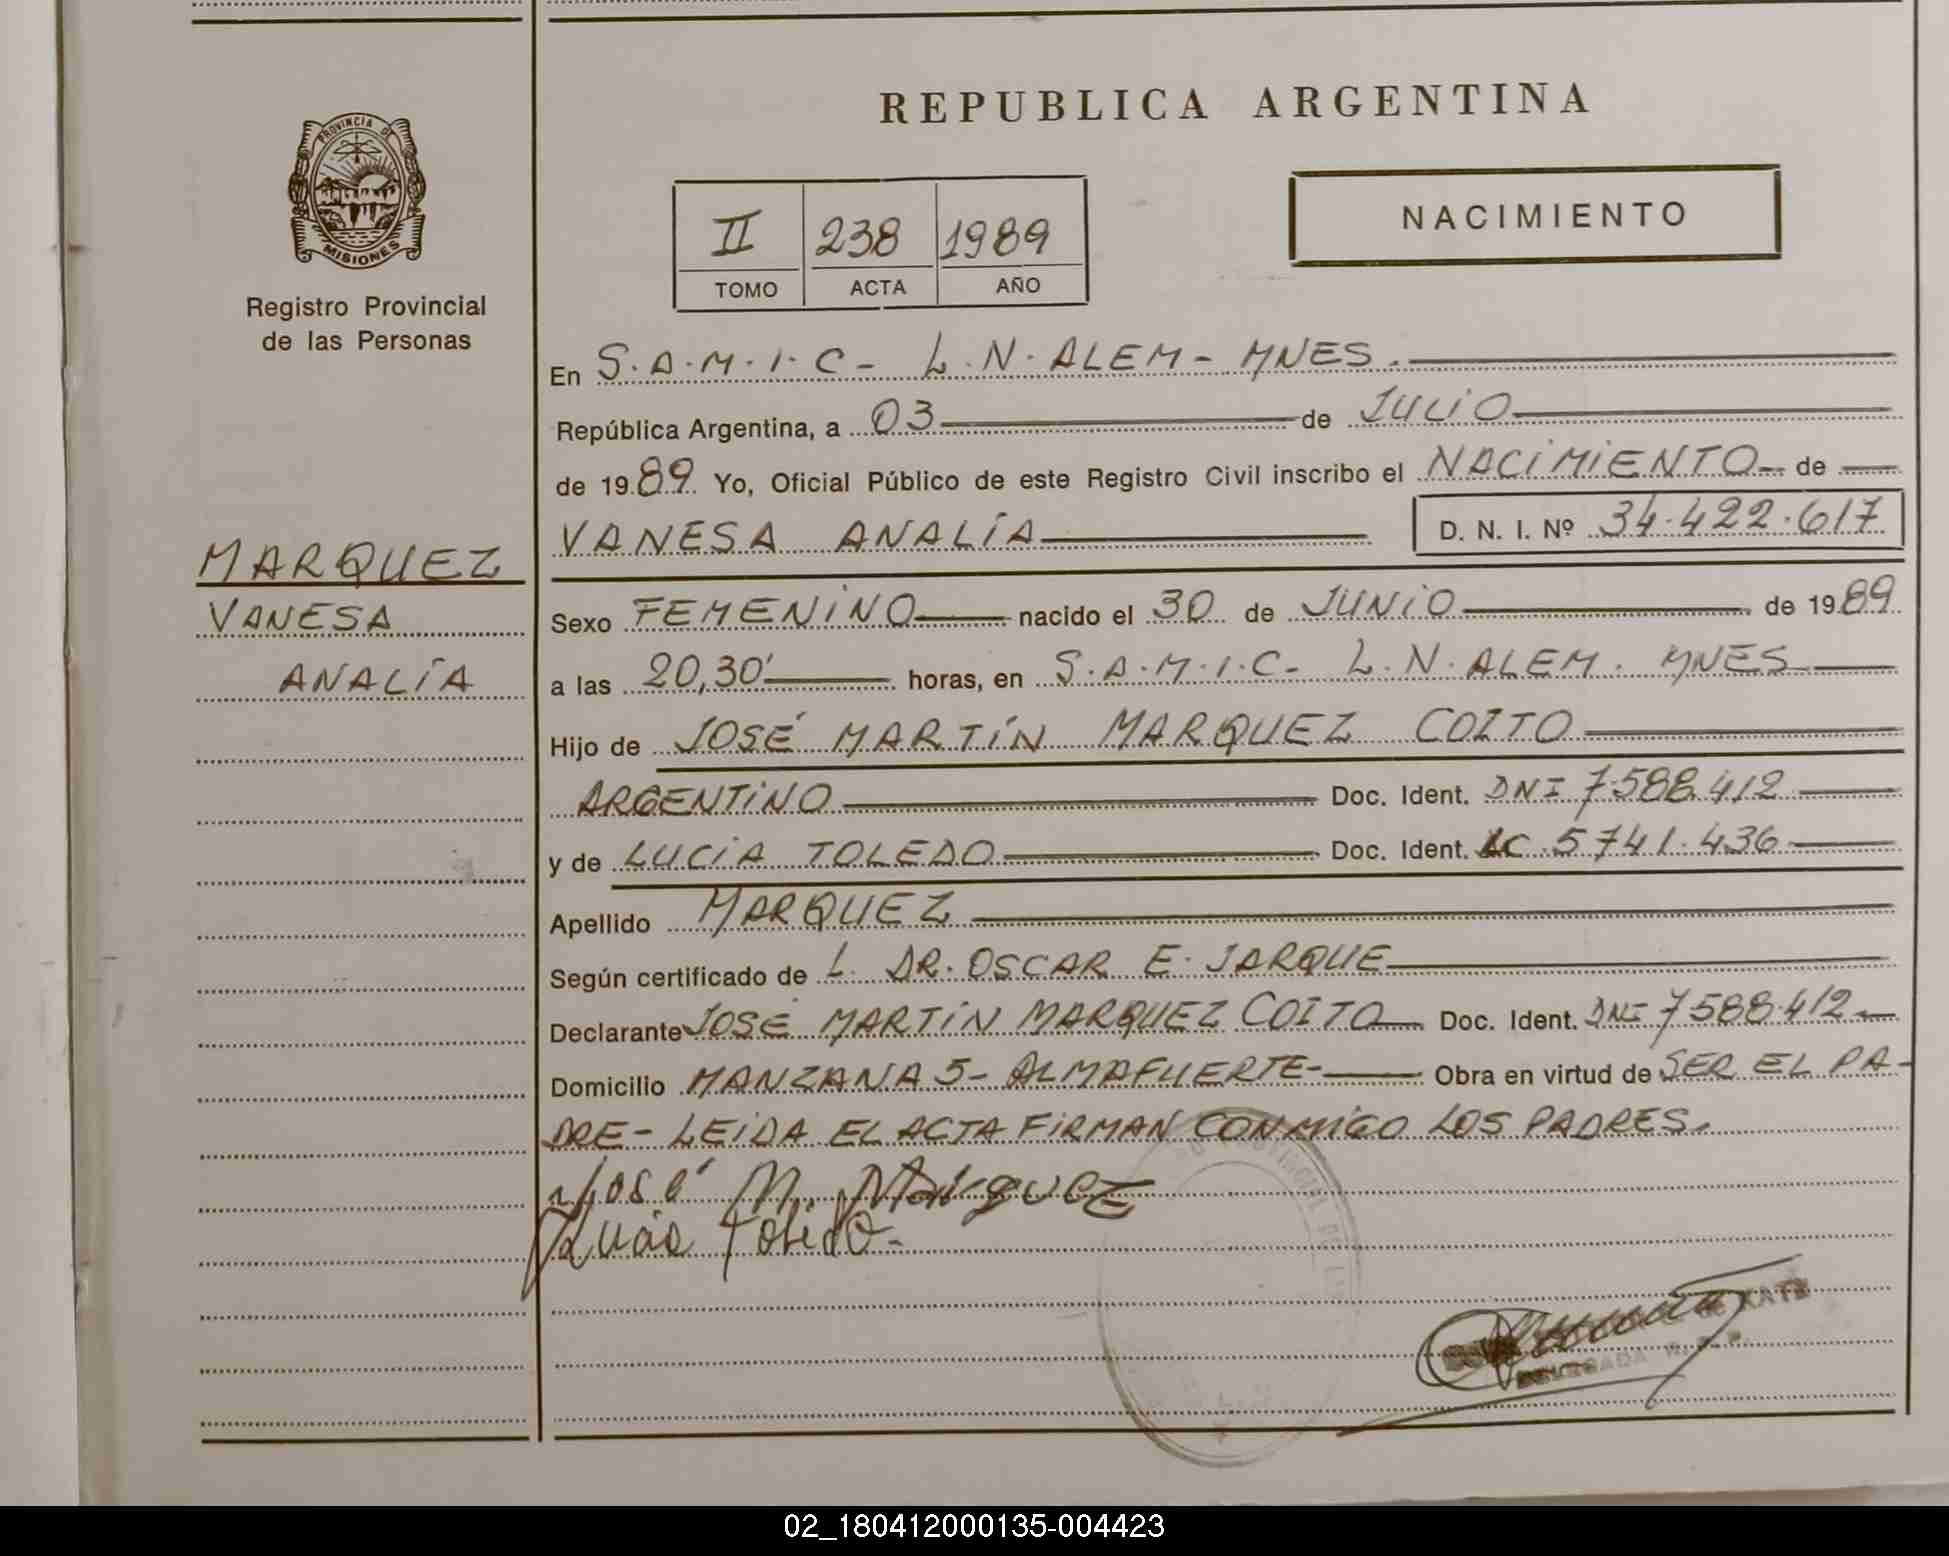 REPUBLICA ARGENTINA
PROVINCIA DE
MISIONES
Registro Provincial
de las Personas
II 238 1989
TOMO ACTA AÑO
NACIMIENTO
En S.A.M.I.C- L.N. ALEM- MNES.
República Argentina, a 03 de JULIO
de 1989 Yo, Oficial Público de este Registro Civil inscribo el NACIMIENTO de
VANESA ANALÍA D. N. I. Nº 34.422.617
MARQUEZ
VANESA
ANALÍA
Sexo FEMENINO nacido el 30 de JUNIO de 1989
a las 20,30' horas, en S.A.M.I.C- L.N. ALEM. MNES
Hijo de JOSÉ MARTÍN MARQUEZ COITO
ARGENTINO Doc. Ident. DNI 7.588.412
y de LUCÍA TOLEDO Doc. Ident. LC 5741.436
Apellido MARQUEZ
Según certificado de L. DR. OSCAR E. JARQUE
Declarante JOSÉ MARTÍN MARQUEZ COITO Doc. Ident. DNI 7588.412
Domicilio MANZANA 5- ALMAFUERTE- Obra en virtud de SER EL PA-
DRE- LEIDA EL ACTA FIRMAN CONMIGO LOS PADRES.
José M. Marquez
Lucia Toledo.
02_180412000135-004423